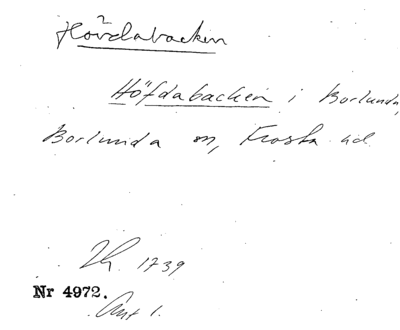 Hövdabacken
Höfdabacken i Borlunda,
Borlunda sn, Frosta hd
Lh. 1739
Nr 4972.
Ant 1.